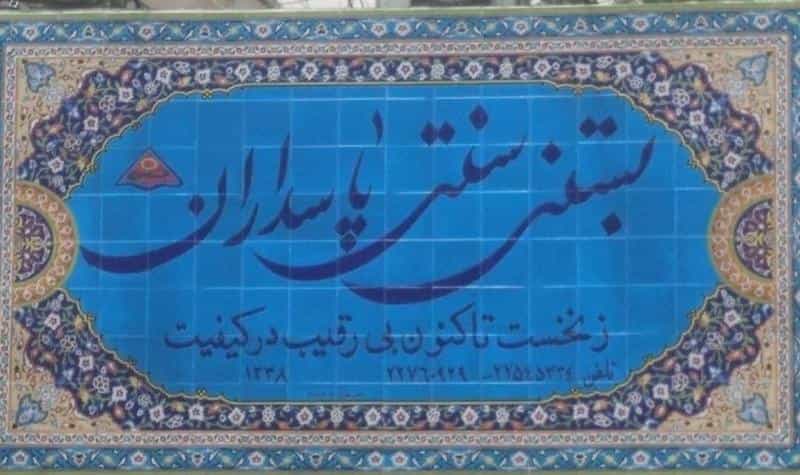 بستنی سنتی پاسداران
ز نخست تاکنون بی رقیب در کیفیت
تلفن ۲۲۷۶۰۹۲۹ ۱۳۳۸